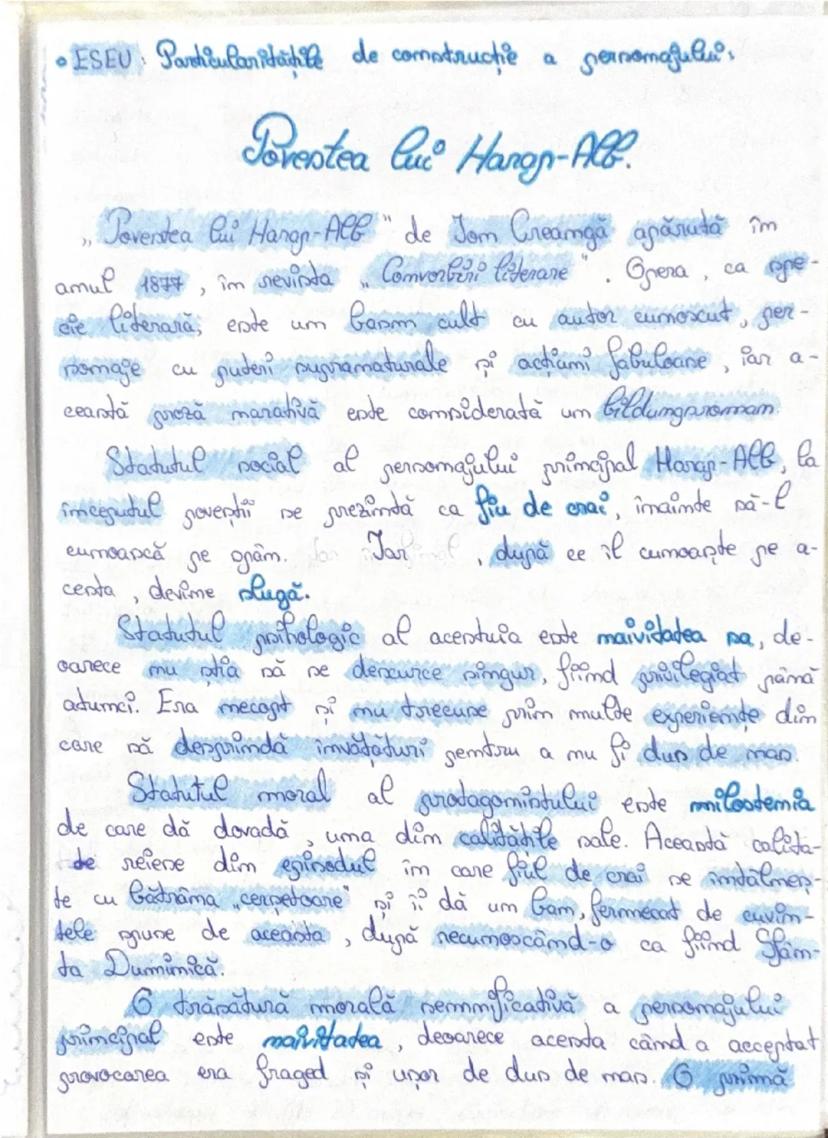 • ESEU: Particularitățile de construcție a personajului.
Povestea lui Harap-Alb.
„Povestea lui Harap-Alb" de Ion Creangă apărută în
anul 1877, în revista „Convorbiri literare". Opera, ca spe-
cie literară, este un basm cult cu autor cunoscut, per-
sonaje cu puteri supranaturale și acțiuni fabuloase, iar a-
ceastă proză narativă este considerată un bildungsroman.
Statutul social al personajului principal Harap-Alb, la
începutul poveștii se prezintă ca fiu de crai, înainte să-l
cunoască pe spân. Iar, după ce îl cunoaște pe a-
cesta, devine slugă.
Statutul psihologic al acestuia este naivitatea sa, de-
oarece nu știa să se descurce singur, fiind privilegiat până
atunci. Era necopt și nu trecuse prin multe experiențe din
care să desprindă învățături pentru a nu fi dus de nas.
Statutul moral al protagonistului este milostenia
de care dă dovadă, una din calitățile sale. Această calita-
te reiese din episodul în care fiul de crai se întâlneș-
te cu bătrâna „cerșetoare" și îi dă un ban, fermecat de cuvin-
tele spuse de aceasta, după recunoscând-o ca fiind Sfân-
ta Duminică.
O trăsătură morală semnificativă a personajului
principal este naivitatea, deoarece acesta când a acceptat
provocarea era fraged și ușor de dus de nas. O primă